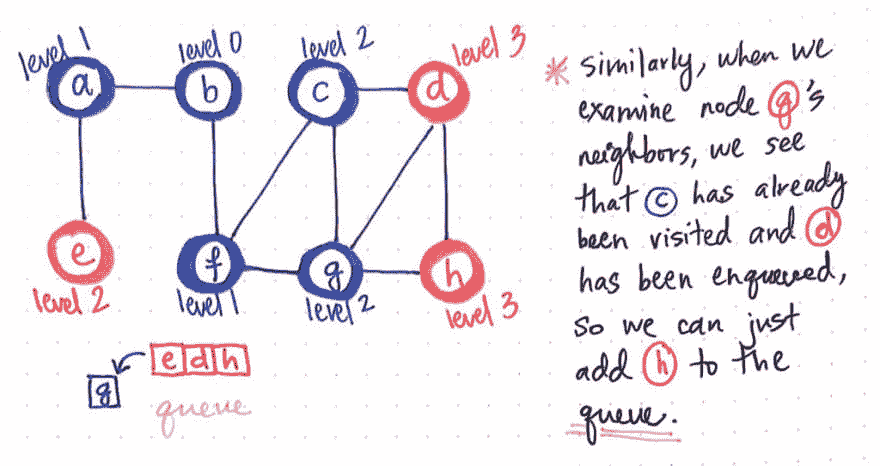 level 1
level 0
level 2
level 3
a
b
c
d
e
f
g
h
level 2
level 1
level 2
level 3
g
e d h
queue
* similarly, when we
examine node g's
neighbors, we see
that c has already
been visited and d
has been enqueued,
so we can just
add h to the
queue.